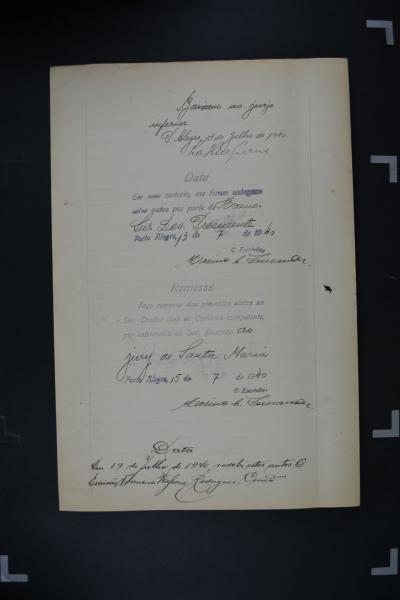 Baixem ao juizo
inferior.
P. Alegre, de Julho de 1940
Data
Em meu cartorio, me foram entregues
estes autos por parte do Exmo.
Snr. Des. Presidente
Porto Alegre, 13 de 7 de 1940
O Escrivão
Fernandes
Remessa
Faço remessa dos presentes autos ao
Snr. Doutor Juiz de Comarca competente,
por intermedio do Snr. Escrivão do
jury de Santa Maria
Porto Alegre, 15 de 7 de 1940
O Escrivão
Fernandes
Data
Em 19 de Julho de 1940, recebi estes autos O
Escrivão, Rodrigues